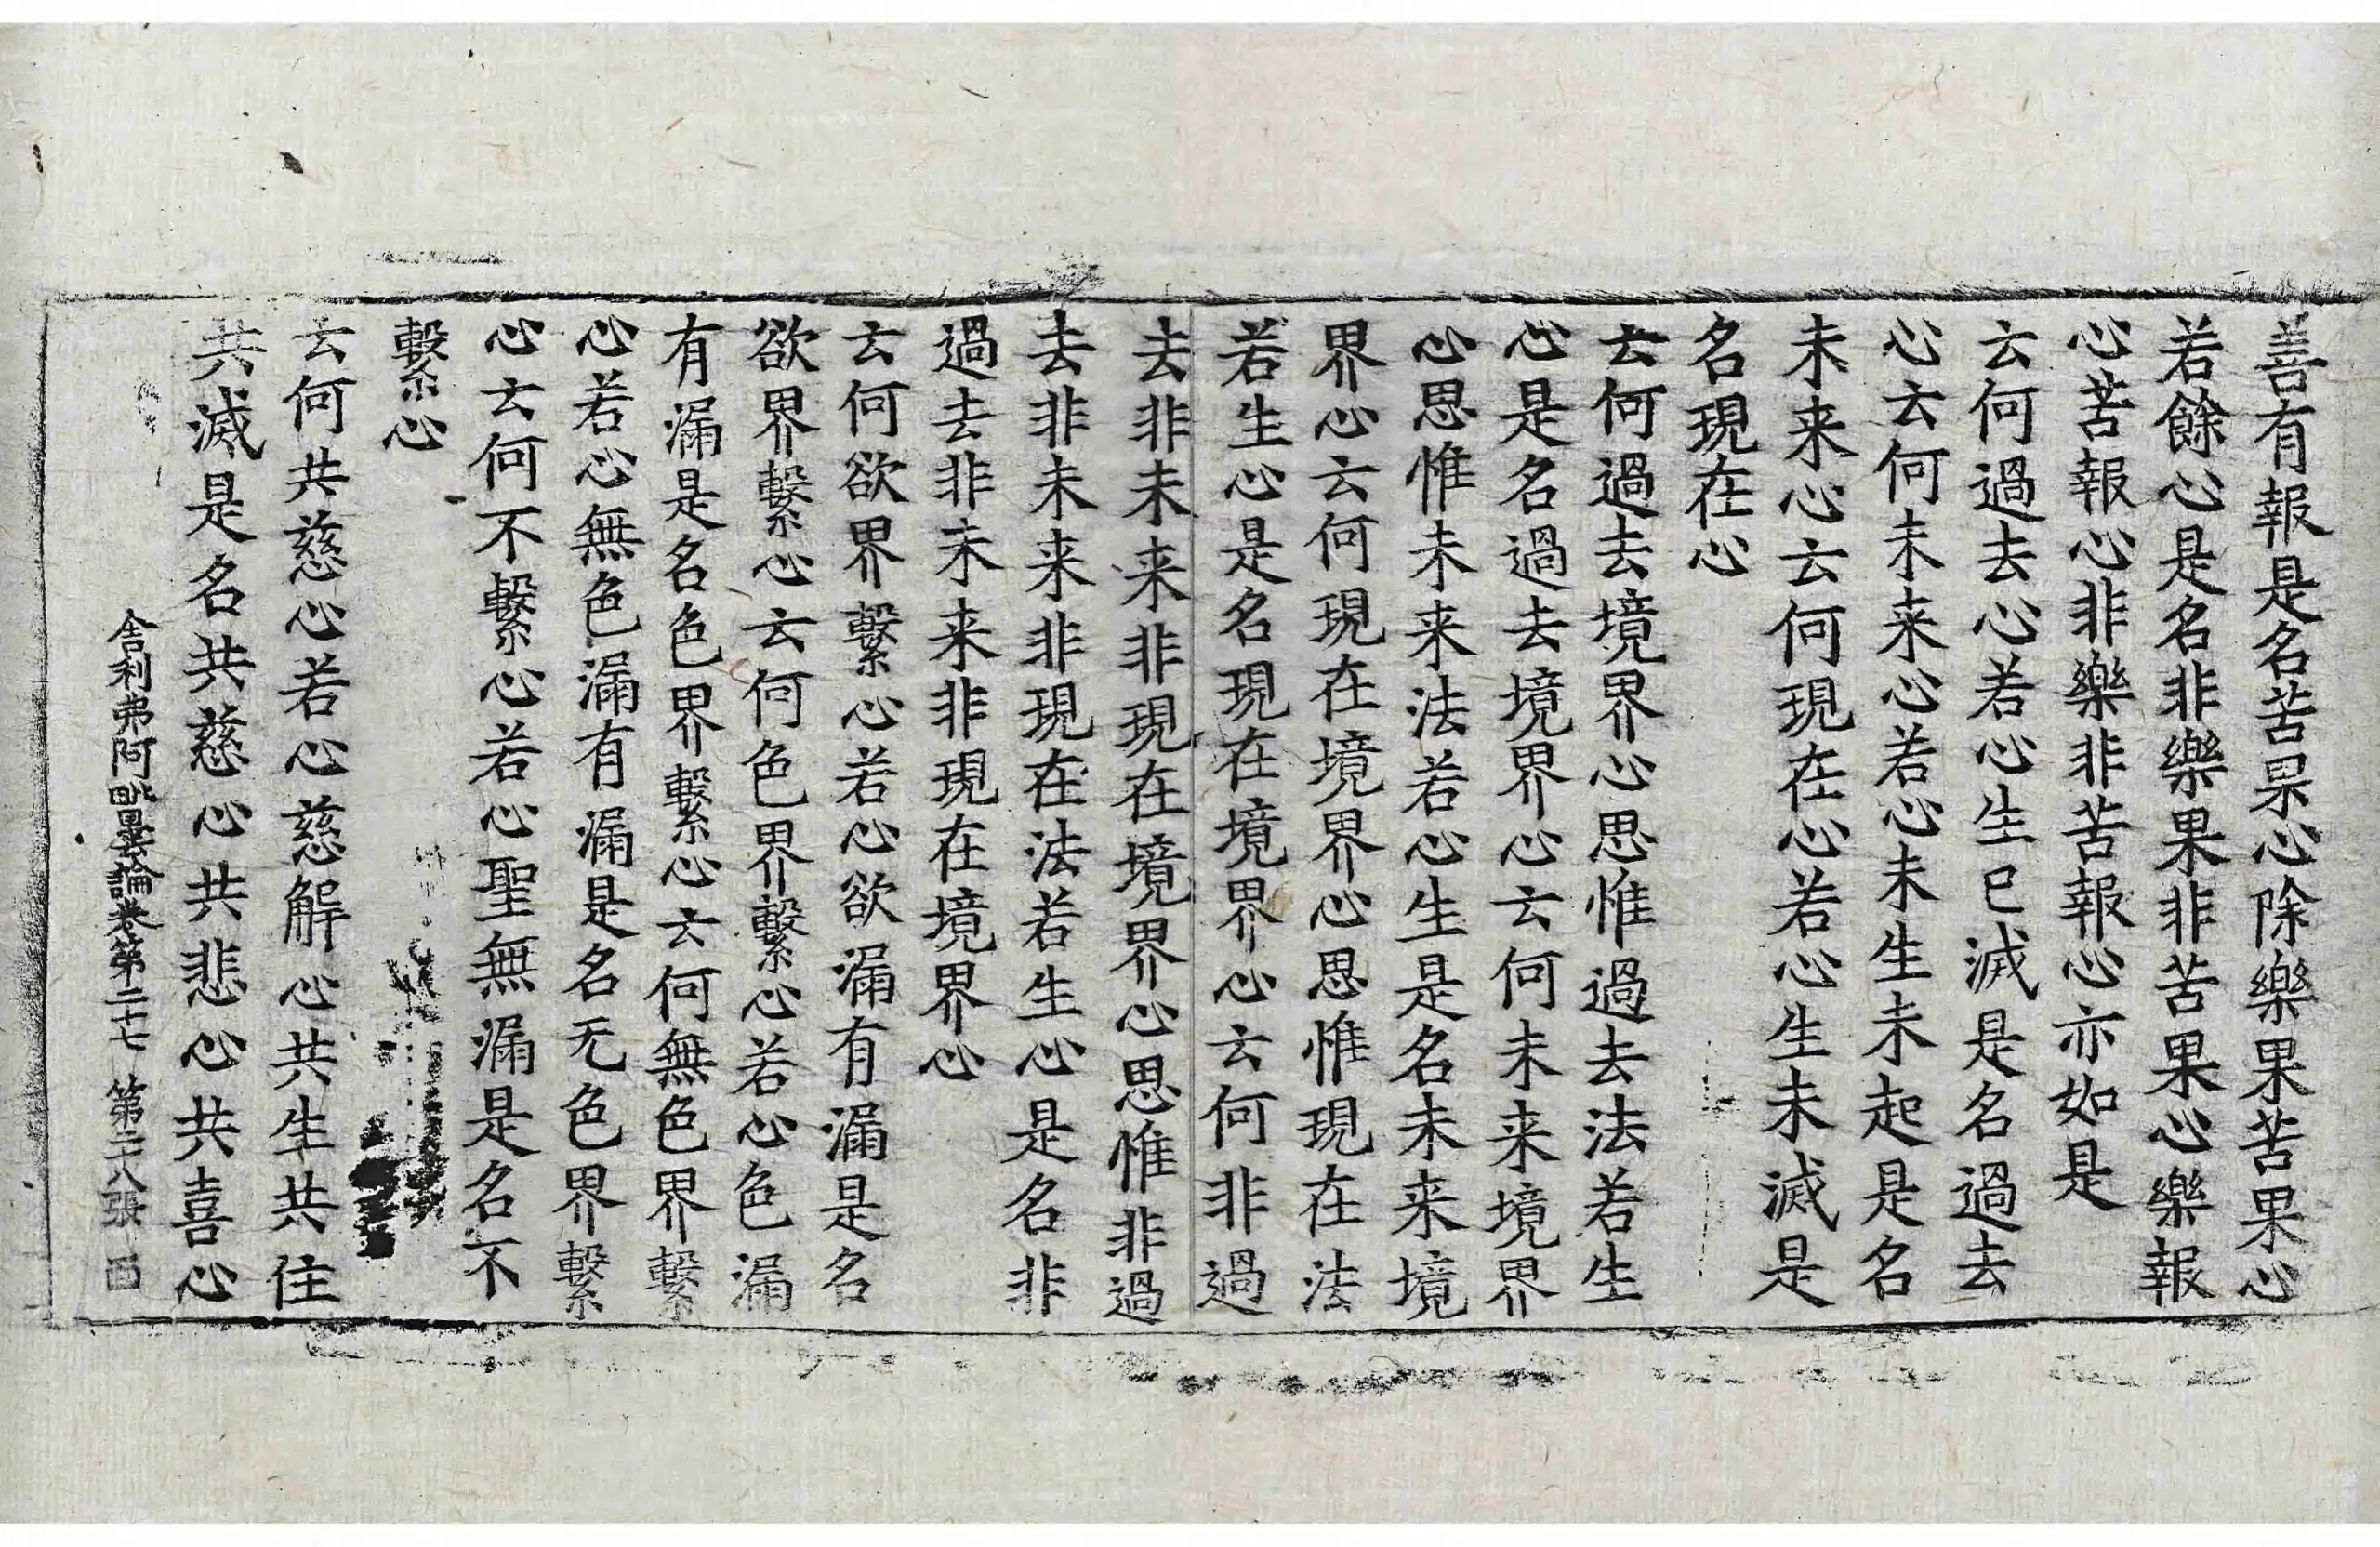 善有報是名苦果心除樂果苦果心
若餘心是名非樂果非苦果心樂報
心苦報心非樂非苦報心亦如是
云何過去心若心生已滅是名過去
心云何未来心若心未生未起是名
未来心云何現在心若心生未滅是
名現在心
云何過去境界心思惟過去法若生
心是名過去境界心云何未来境界
心思惟未来法若心生是名未来境
界心云何現在境界心思惟現在法
若生心是名現在境界心云何非過
去非未来非現在境界心思惟非過
去非未来非現在法若生心是名非
過去非未来非現在境界心
云何欲界繫心若心欲漏有漏是名
欲界繫心云何色界繫心若心色漏
有漏是名色界繫心云何無色界繫
心若心無色漏有漏是名无色界繫
心云何不繫心若心聖無漏是名不
繫心
云何共慈心若心慈解心共生共住
共滅是名共慈心共悲心共喜心
舍利弗阿毗曇論卷第二十七 第二十八張